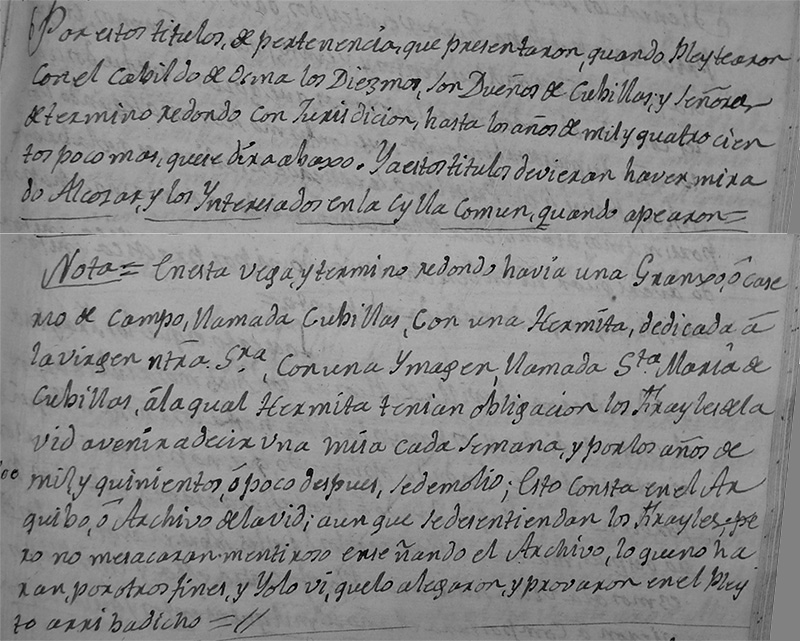 Por estos titulos, de pertenencia, que presentaron, quando Pleytearon
con el Cabildo de Osma los Diezmos, son Dueños de Cubillas, y señores
de termino redondo con Jurisdicion, hasta los años de mil y quatrocien
tos poco mas, que se dira abaxo. Ya estos titulos devieran haver mira
do Alcozar, y los Ynteresados en la Cylla Comun, quando apearon=
Nota= En esta vega, y termino redondo havia una Granxo, ô case
rio de campo, llamada Cubillas, Con una Hermita, dedicada â
la virgen ntra. Sra, Con una Ymagen, llamada Sta. Maria de
Cubillas, âla qual Hermita tenian obligacion los Frayles de la
vid a venir a decir una misa cada semana, y por los años de
mil y quinientos, ô poco despues, se demolio; Esto Consta en el Ar
quibo, ô Archivo de la vid; aun que se desentiendan los Frayles, pe
ro no me sacaran mentiroso enseñando el Archivo, lo que no ha
ran, por otros fines, y Yo lo vi, que lo alegaron, y provaron en el Pley
to arriba dicho = //